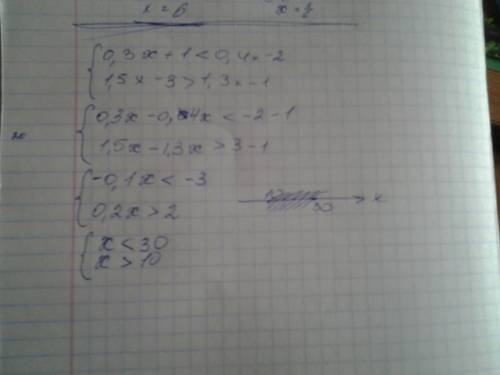 x = 6 x = 7
{ 0,3x + 1 < 0,4x - 2
1,5x - 3 > 1,3x - 1
{ 0,3x - 0,4x < -2 - 1
1,5x - 1,3x > 3 - 1
{ -0,1x < -3
0,2x > 2
10 30 x
{ x < 30
x > 10